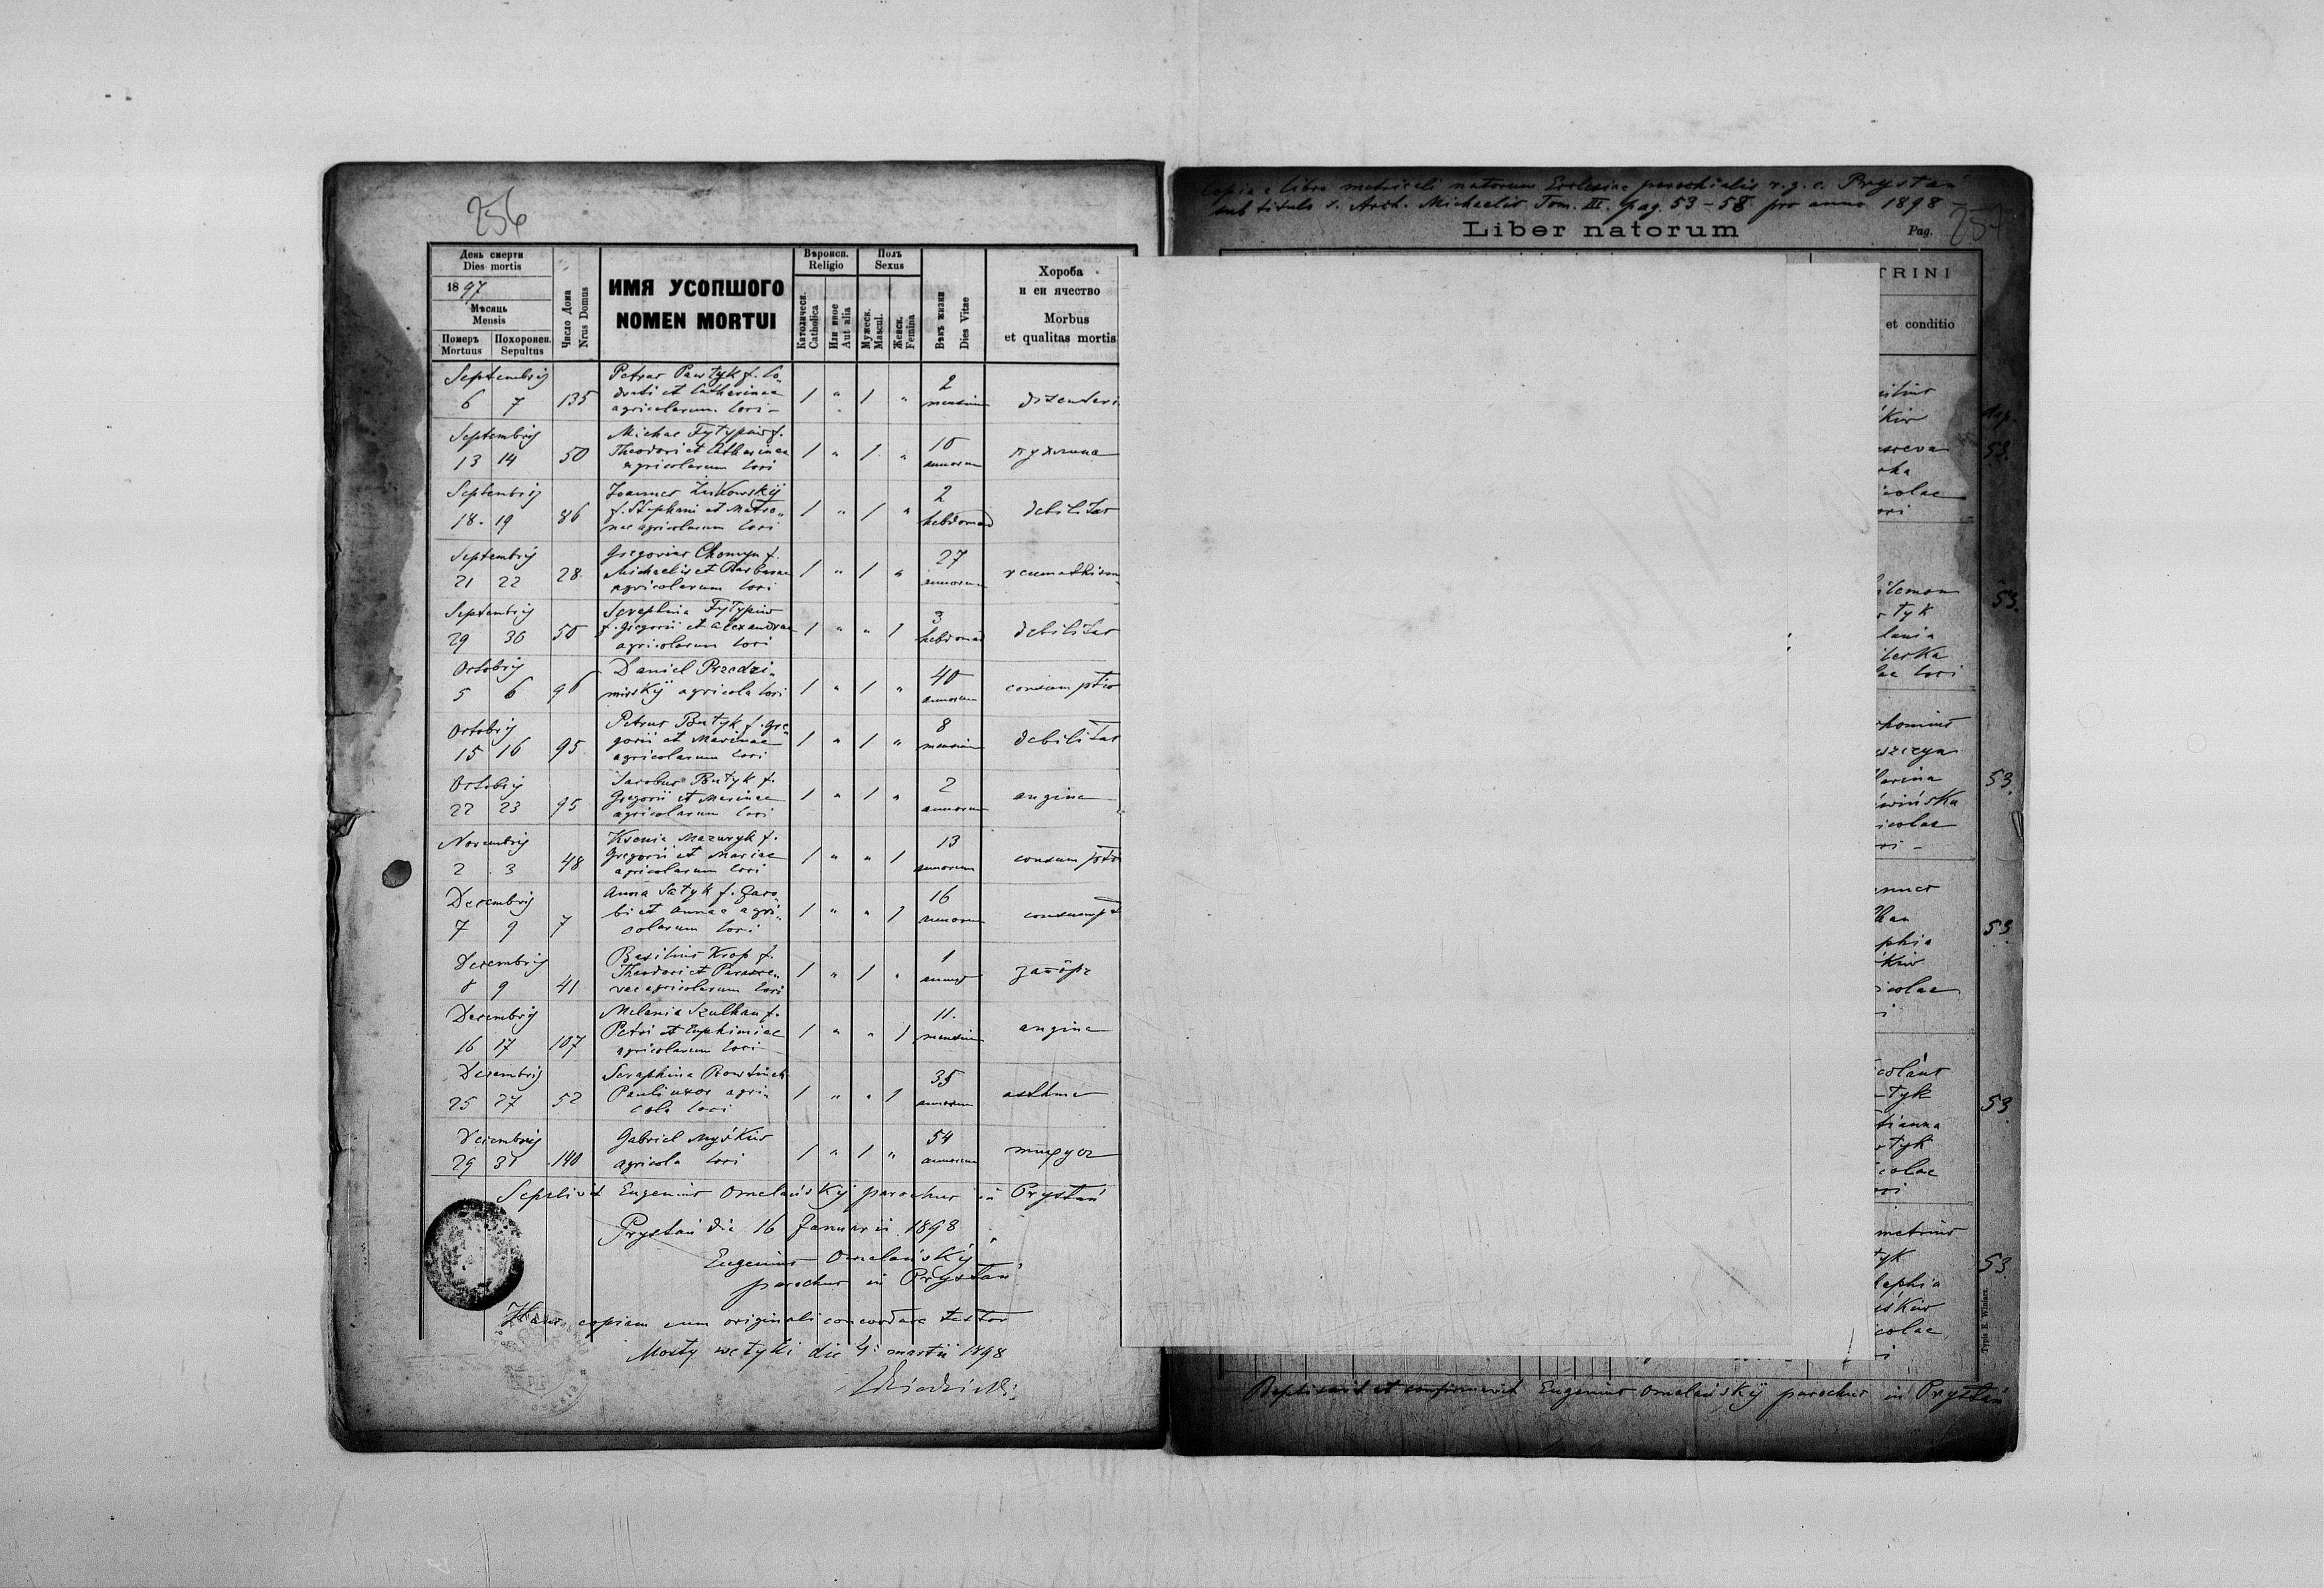 256
День смерти
Dies mortis
1897
Мѣсяць
Mensis
Померъ Похоронен.
Mortuus Sepultus
Число Дома
Nrus Domus
ИМЯ УСОПШОГО
NOMEN MORTUI
Вѣроисп.
Religio
Католическ.
Catholica
Или иное
Aut alia
Полъ
Sexus
Мужеск.
Mascul.
Женск.
Femina
Вѣкъ жизни
Dies Vitae
Хороба
и еи ячество
Morbus
et qualitas mortis
Septembris
6 7 135
Petrus f.
et Catharinae
agricolarum loci
1 " 1 "
2
mensium
Septembris
13 14 50
Michael Fytypiw f.
Theodori et Catharinae
agricolarum loci
1 " 1 "
10
annorum
Septembris
18 19 86
Joannes Żukowskij
f. Stephani et Matro-
nae agricolarum loci
1 " 1 "
2
hebdomad
debilitas
Septembris
21 22 28
Gregorius Chomyn f.
Michaelis et Barbarae
agricolarum loci
1 " 1 "
27
annorum
reumathism
Septembris
29 30 50
Seraphina Fytypiw
f. Gregorii et Alexandrae
agricolarum loci
1 " " 1
3
hebdomad
debilitas
Octobris
5 6 96
Daniel Przedzi-
mirskij agricola loci
1 " 1 "
40
annorum
consumptio
Octobris
15 16 95
Petrus Butyk f. Gre-
gorii et Marinae
agricolarum loci
1 " 1 "
8
mensium
debilitas
Octobris
22 23 95
Jacobus Butyk f.
Gregorii et Marinae
agricolarum loci
1 " 1 "
2
annorum
angina
Novembris
2 3 48
Ksenia Mazuryk f.
Gregorii et Mariae
agricolarum loci
1 " " 1
13
annorum
consumptio
Decembris
7 9 7
Anna f. Jaco-
bi et Annae agri-
colarum loci
1 " " 1
16
annorum
consumpt
Decembris
8 9 41
Basilius Krop f.
Theodori et Parasce-
vae agricolarum loci
1 " 1 "
1
annus
Decembris
16 17 107
Melania Szulhan f.
Petri et Euphimiae
agricolarum loci
1 " " 1
11
mensium
angina
Decembris
25 27 52
Seraphina
Pauli uxor agri-
cola loci
1 " " 1
35
annorum
asthma
Decembris
29 31 140
Gabriel Myśkiw
agricola loci
1 " 1 "
54
annorum
тифус
Sepelivit Eugenius Omelańskij parochus in Prystań
Prystań die 16 Januarii 1898
Eugenius Omelańskij
parochus in Prystań
Hanc copiam cum originali concordare testor
Mosty wełyki die 4 martii 1898
Copia e libro metricali natorum Ecclesiae parochialis r. g. c. Prystań
sub titulo s. Arch. Michaelis Tom. III. pag. 53-58 pro anno 1898
Liber natorum
Pag. 257
TRINI
et conditio
53.
53.
53
53
53
53
Typis E. Winiarz.
Baptisavit et confirmavit Eugenius Omelańskij parochus in Prystań